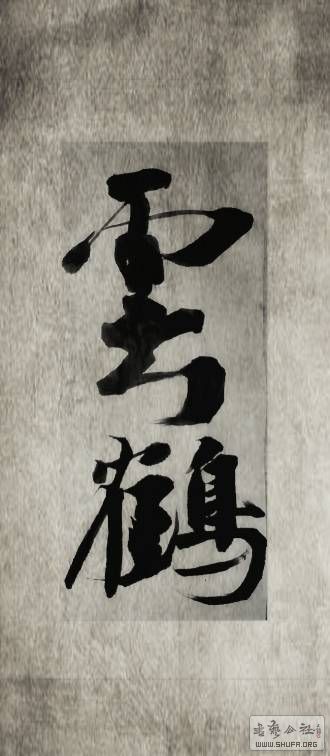 雲鶴
书艺公社
WWW.SHUFA.ORG